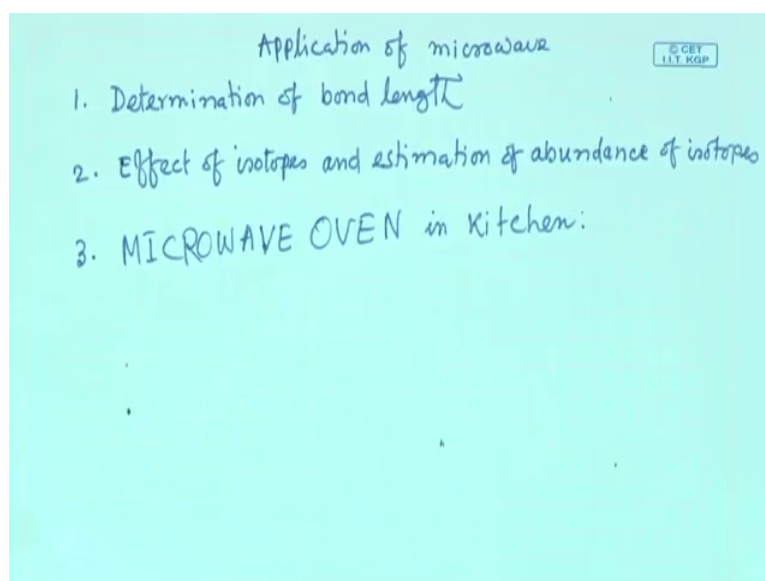 Application of microwave
© CET
I.I.T. KGP
1. Determination of bond length
2. Effect of isotopes and estimation of abundance of isotopes
3. MICROWAVE OVEN in Kitchen: